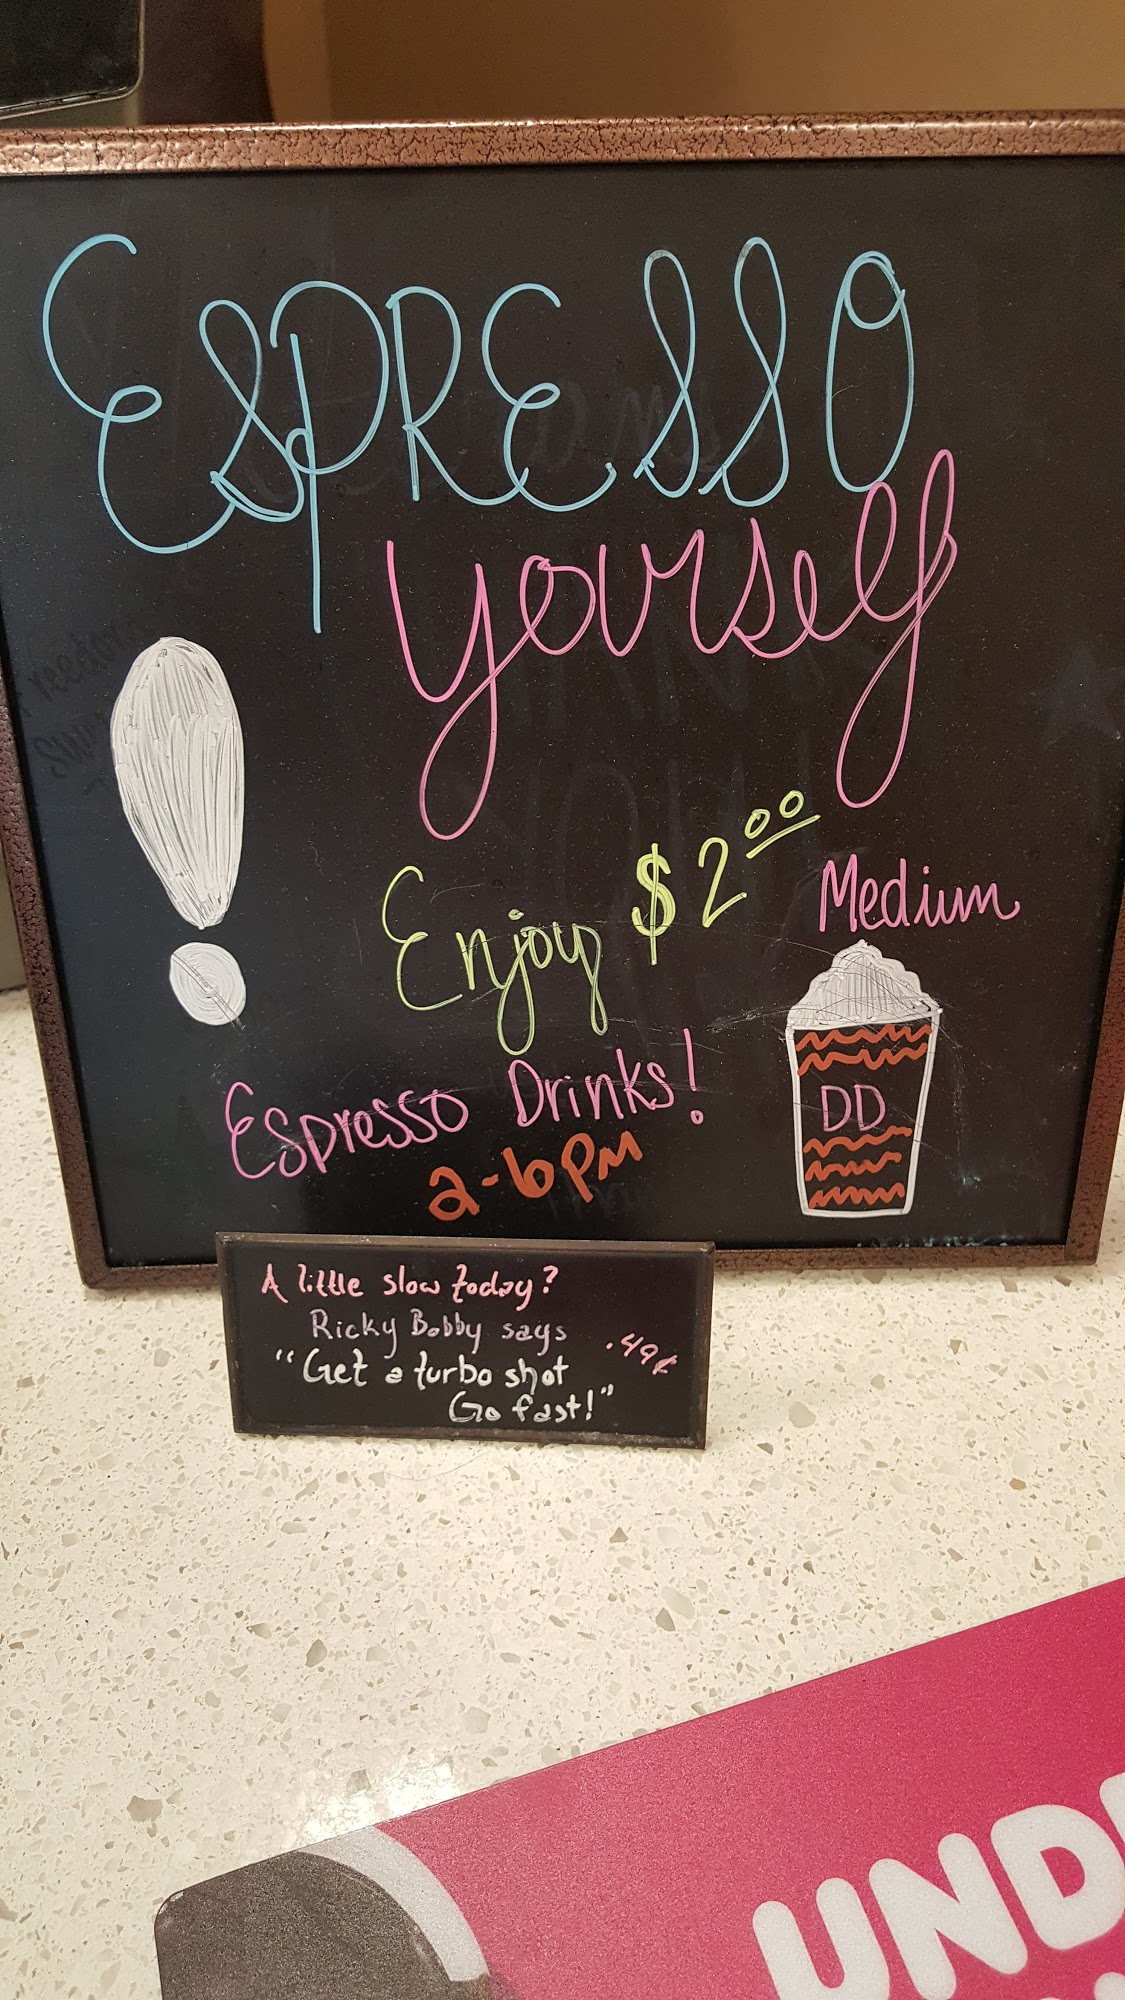 ESPRESSO
yourself
Enjoy $2.00
Medium
Espresso Drinks!
2-6PM
DD
A little slow today?
Ricky Bobby says
.49¢
"Get a turbo shot
Go fast!"